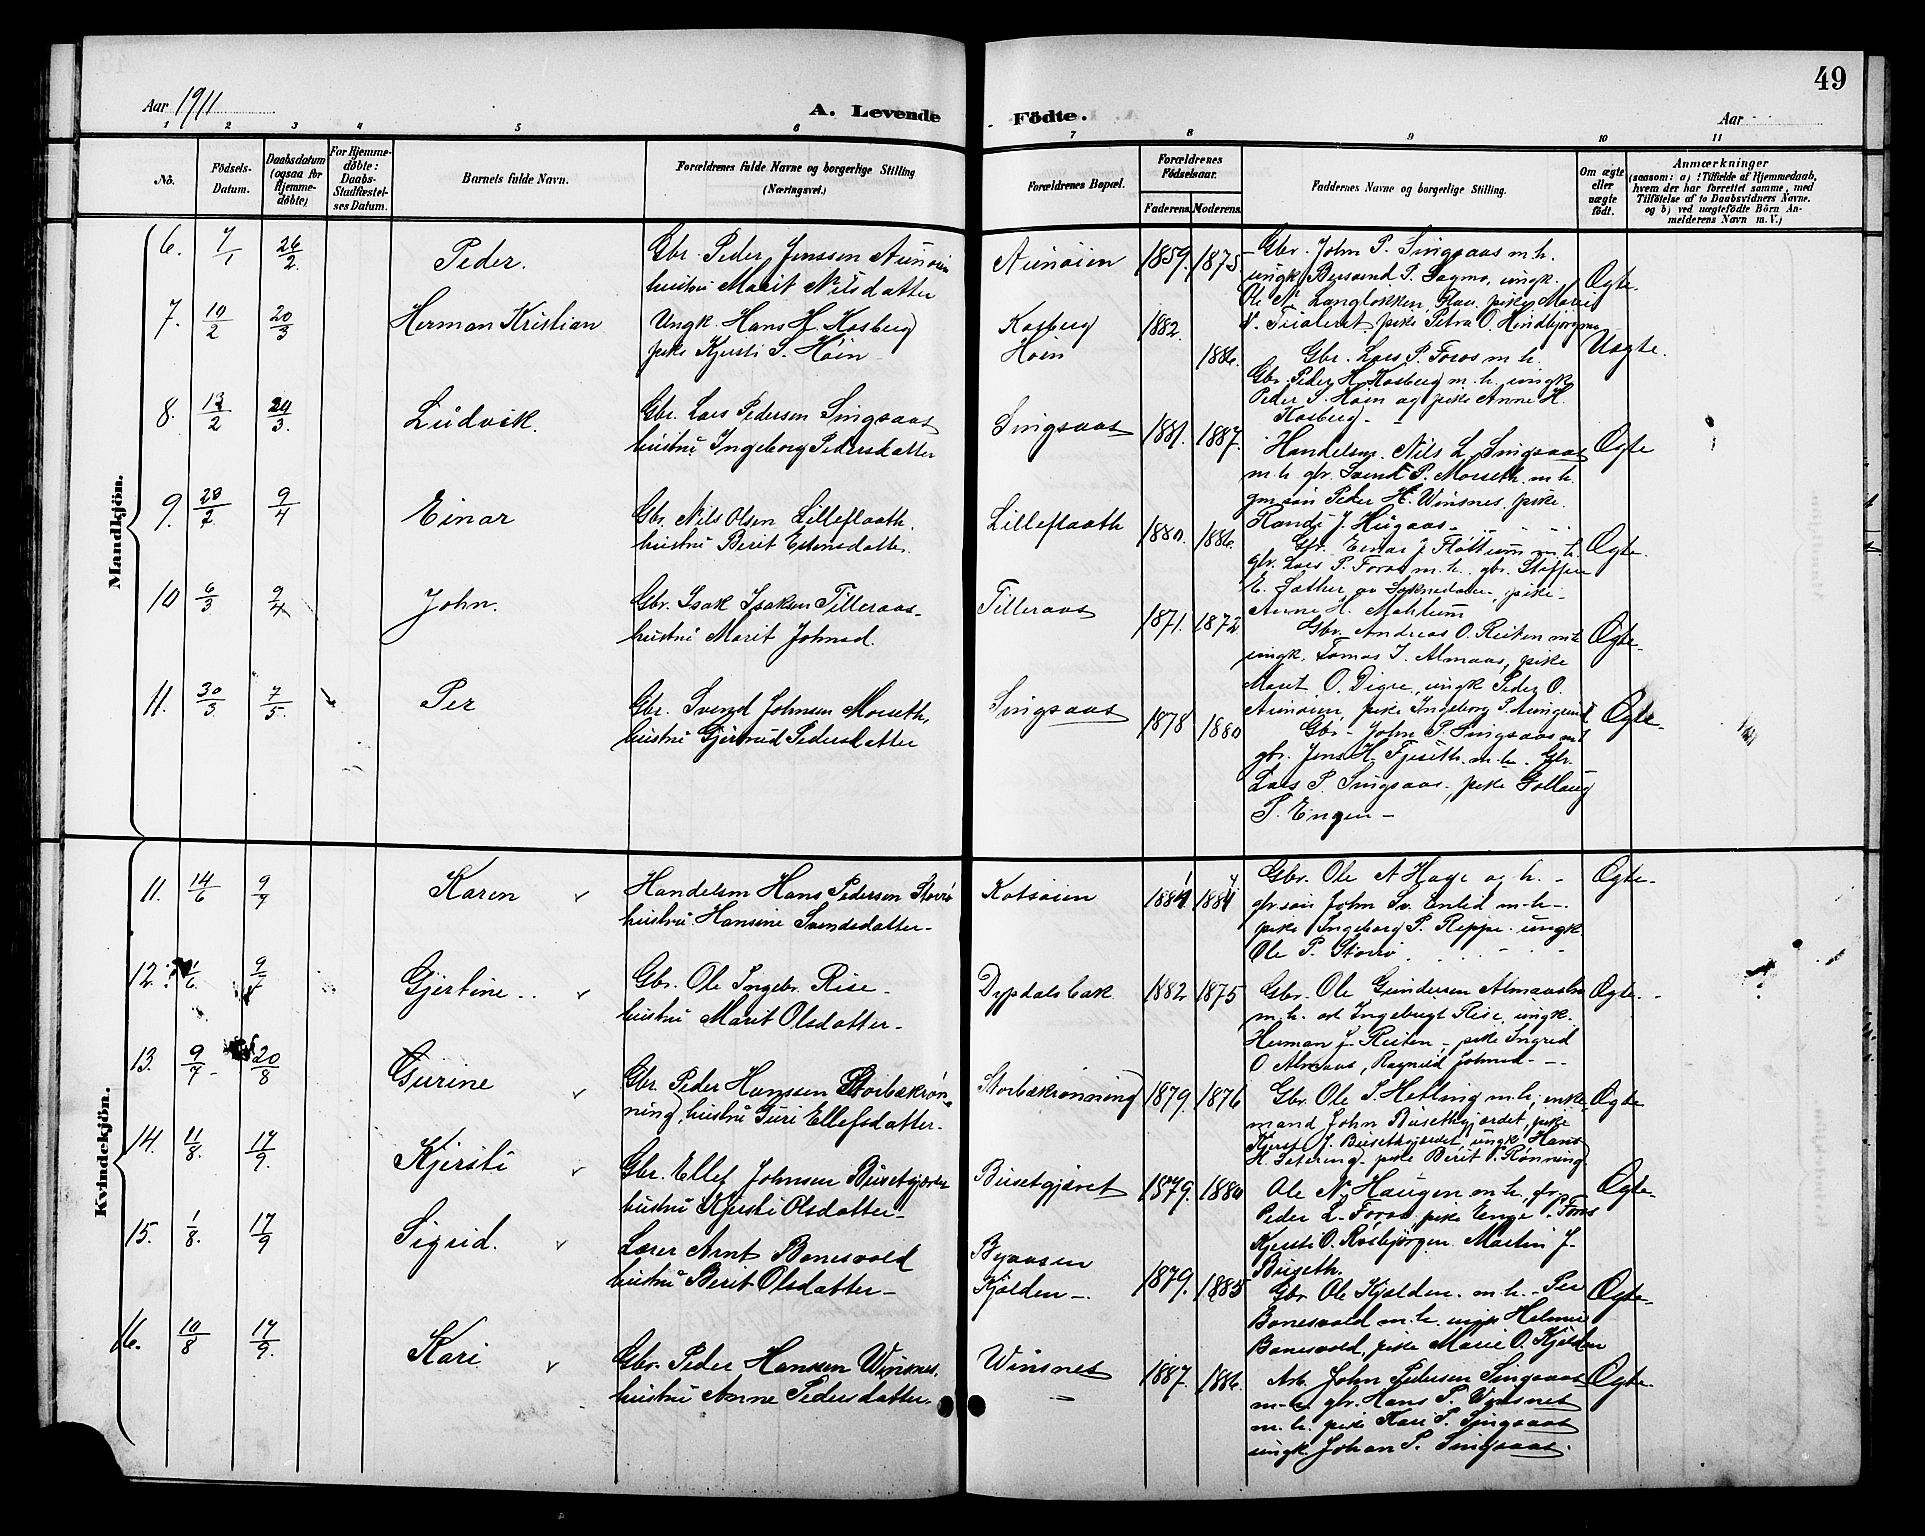 49
Aar 1911
A. Levende Födte.
Aar
1 2 3 4 5 6 7 8 9 10 11
No.
Födsels-Datum.
Daabsdatum (ogsaa for Hjemme-döbte)
For Hjemme-döbte: Daabs-Stadfæstel-ses Datum.
Barnets fulde Navn.
Forældrenes fulde Navne og borgerlige Stilling (Næringsvei.)
Forældrenes Bopæl.
Forældrenes Födselsaar.
Faderens. Moderens.
Faddernes Navne og borgerlige Stilling.
Om ægte eller uægte født.
Anmærkninger
(saasom: a) i Tilfælde af Hjemmedaab,
hvem der har forrettet samme, med
Tilföielse af to Daabsvidners Navne.
og b) ved uægtefödte Börn An-
melderens Navn m. V.)
Mandkjön.
6. 7/1 26/2 Peder. Gbr. Peder Jenssen Aunöien
hustru Marit Nilsdatter
Aunöien 1859. 1875
Gbr. John P. Singsaas m. h.
ungk. P. Sagmo, ungk.
Ole N. Langlökken, pike Marit
pike Petra O.
Ægte.
7. 10/2 20/3 Herman Kristian Ungk. Hans H. Kosberg
pike Kjersti S. Höin
Kosberg
Höin 1882. 1886.
Gbr. Lars P. Foros m. h.
Gbr. Peder H. Kosberg m. h. ungk.
Peder S. Höin og pike Anne H.
Kosberg
Uægte.
8. 12/2 20/3. Ludvik. Gbr. Lars Pedersen Singsaas
hustru Ingeborg Pedersdatter
Singsaas 1881. 1887.
Handelsm. Nils L. Singsaas
m. h. gbr. Svend P. Morseth m. h.
Peder H. Winsnes, pike
Randi J. Hugaas
Ægte
9. 28/2 9/4 Einar Gbr. Nils Olsen Lilleflaath.
hustru Berit Estensdatter.
Lilleflaath 1880. 1886.
Gbr. Einar J. Flöttum m. h.
gbr. Lars P. Foros m. h. gbr. Steffen
E. av Soknedalen, pike
Anne H.
Ægte.
10 6/3 9/4 John. Gbr. Isak Isaksen Tilleraas
hustru Marit Johnsd.
Tilleraas 1871. 1872
Gbr. Andreas O. Reiten m. h.
ungk. Tomas J. Almaas, pike
Marit O. Digre, ungk Peder O.
Aunöien pike Ingeborg
Ægte.
11. 30/3 7/5. Per Gbr. Svend Johnsen Morseth,
hustru Gjertrud Pedersdatter
Singsaas 1878 1880
Gbr. John P. Singsaas m. h.
gbr. Jens H. Fjeseth m. h. Gbr.
Lars P. Singsaas, pike Gollaug
P. Engen
Ægte.
Kvindekjön.
11. 14/6 9/7 Karen Handelsm Hans Pedersen Storrö
hustru Hansine Svendsdatter
Kotsöien 1884
Gbr. Ole A Hage og h.
gbr. sön John Sv. Enlid m. h.
pike Ingeborg P. Reppe ungk
Ole P. Storrö
Ægte.
12. 9/7 Gjertine Gbr. Ole Ingebr. Rise
hustru Marit Olsdatter
Dypdalsbak 1882 1875
Gbr. Ole Gundersen
m. h. Ingebrigt Rise, ungk.
Herman J. Reiten, pike Ingrid
O Almaas, Ragnild Johnsd
Ægte.
13. 9/7 20/8 Gurine Gbr. Peder Hanssen Storbækrön-
ning, hustru Guri Ellefsdatter.
Storbækrönning 1879. 1876
Gbr. Ole S. Hetling m. h., enke-
mand John Busethgjærdet, pike
Kjersti J. Busethgjærdet, ungk Hans
H. Sætering pike Berit P. Rönning
Ægte
14. 11/8. 17/9. Kjersti Gbr. Ellef Johnsen Busetgjæret
hustru Kjersti Olsdatter
Busetgjæret 1879. 1880
Ole N. Haugen m. h., gbr.
Peder L. Foros, pike Enge P. Foros
Kjersti O. Rösbjörgen Martin J.
Buseth.
Ægte.
15. 1/8. 17/9 Sigrid. Lærer Arnt Bonesvold
hustru Berit Olsdatter
Byaasen
Kjölden 1879. 1885
Gbr Ole Kjölden m. h. Per
Bonesvold m. h. ungk Helmer
Bonesvold, pike Marie O. Kjölden
Ægte.
16. 10/8 17/9. Kari Gbr. Peder Hanssen Winsnes,
hustru Anne Pedersdatter.
Winsnes 1887. 1886.
Arb. John Pedersen Singsaas
m. h. gbr. Hans P. Winsnes
m. h. pike Kari P. Singsaas
ungk. Johan P. Singsaas.
Ægte.